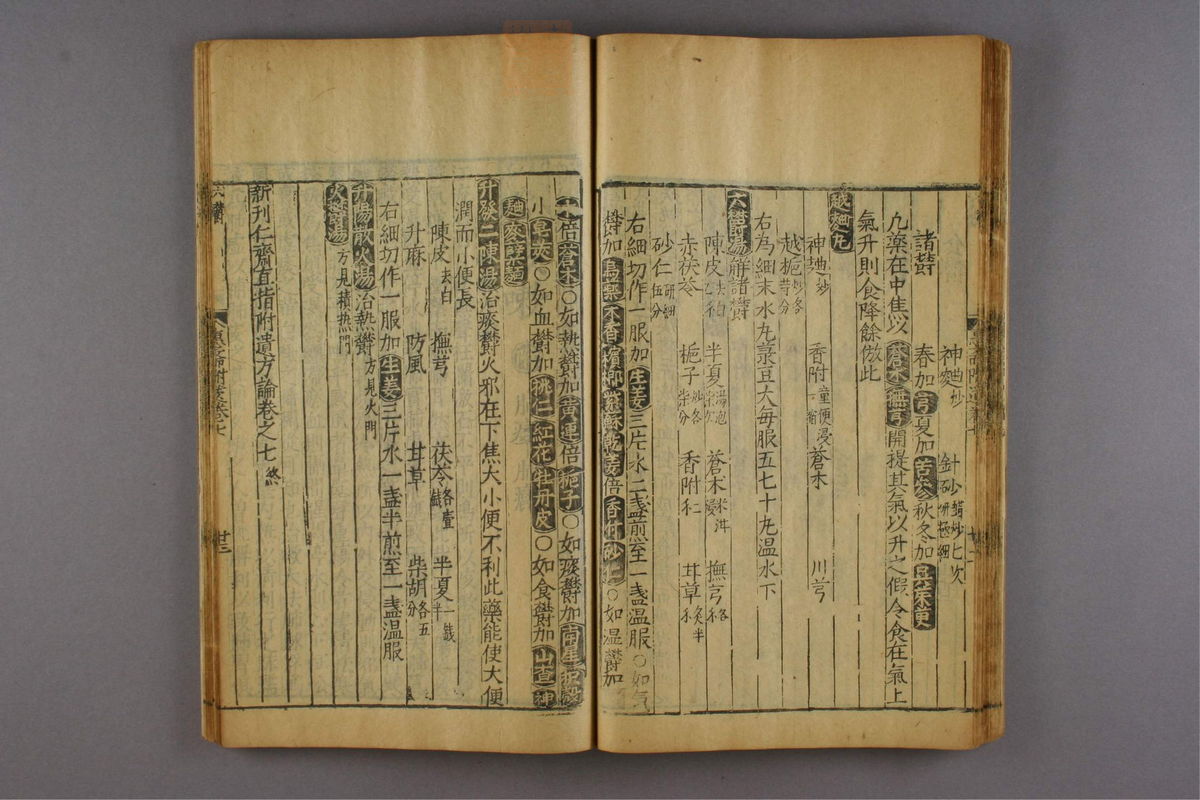 神麯炒 針砂醋炒七次研極細
諸鬱 春加芎夏加苦參秋冬加吳茱萸
凡藥在中焦以蒼朮撫芎開提其氣以升之假令食在氣上
氣升則食降餘倣此
越麯丸
神麯炒 香附童便浸一宿 蒼朮 川芎
越梔炒各等分
右為細末水丸菉豆大每服五七十丸溫水下
六鬱湯解諸鬱
陳皮去白 半夏湯泡 蒼朮米泔浸 撫芎各
赤茯苓 梔子炒各柒分 香附 甘草炙半
砂仁研細伍分
右細切作一服加生姜三片水二盞煎至一盞溫服○如氣
鬱加烏藥木香檳榔紫蘇乾姜倍香附砂仁○如濕鬱加
朮倍蒼朮○如熱鬱加黃連倍梔子○如痰鬱加南星枳殼
小皂莢○如血鬱加桃仁紅花牡丹皮○如食鬱加山查神
麯麥糵麵
升發二陳湯治痰鬱火邪在下焦大小便不利此藥能使大便
潤而小便長
陳皮去白 撫芎 茯苓各壹錢 半夏一錢半
升麻 防風 甘草 柴胡各五分
右細切作一服加生姜三片水一盞半煎至一盞溫服
升陽散火湯治熱鬱方見火門
火鬱湯方見積熱門
新刊仁齋直指附遺方論卷之七 終
六鬱
廿三